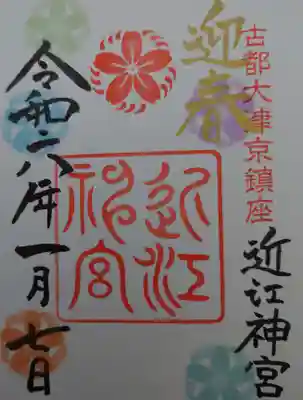 古都大津京鎮座
近江神宮
迎春
近江
神宮
令和八年一月七日